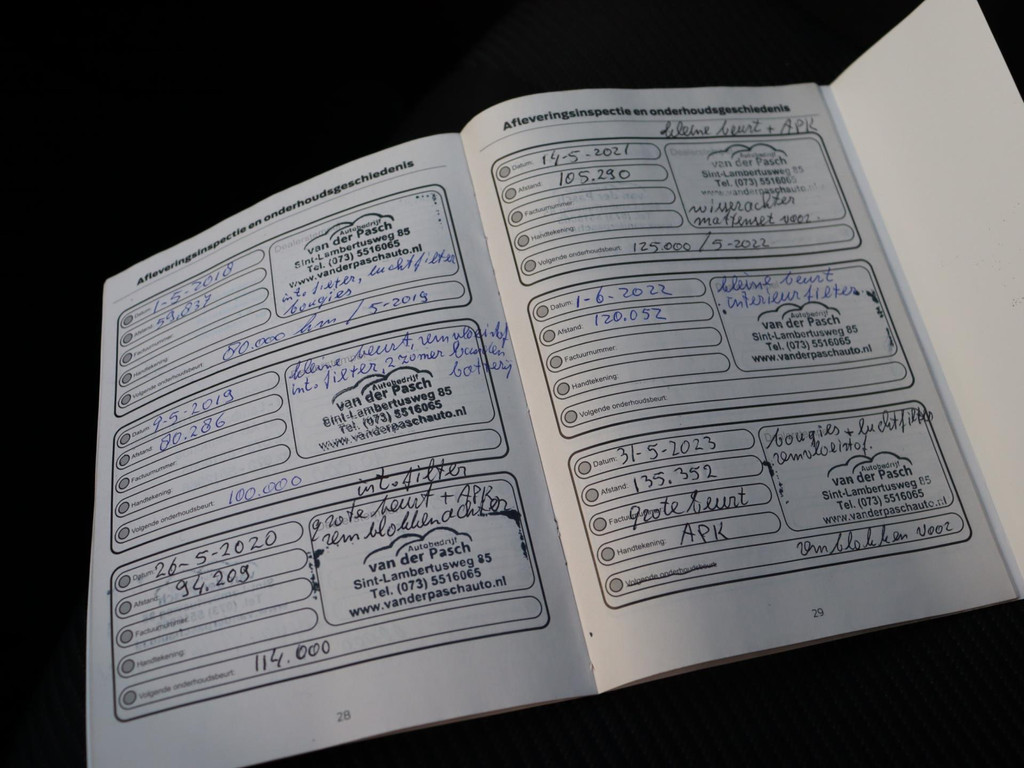 Afleveringsinspectie en onderhoudsgeschiedenis
Datum: 1-5-2018
Afstand: 59.837
Factuurnummer:
Handtekening:
Volgende onderhoudsbeurt: 80.000 km / 5-2019
Autobedrijf
van der Pasch
Sint-Lambertusweg 85
Tel. (073) 5516065
www.vanderpaschauto.nl
int. filter, luchtfilter
bougies
Datum: 9-5-2019
Afstand: 80.286
Factuurnummer:
Handtekening:
Volgende onderhoudsbeurt: 100.000
kleine beurt, remvloeistof
int. filter, 2 zomer banden
batterij
Autobedrijf
van der Pasch
Sint-Lambertusweg 85
Tel. (073) 5516065
www.vanderpaschauto.nl
Datum: 26-5-2020
Afstand: 94.209
Factuurnummer:
Handtekening:
Volgende onderhoudsbeurt: 114.000
int. filter
grote beurt + APK
remblokken achter
Autobedrijf
van der Pasch
Sint-Lambertusweg 85
Tel. (073) 5516065
www.vanderpaschauto.nl
28
Afleveringsinspectie en onderhoudsgeschiedenis
kleine beurt + APK
Datum: 14-5-2021
Afstand: 105.290
Factuurnummer:
Handtekening:
Volgende onderhoudsbeurt: 125.000 / 5-2022
Autobedrijf
van der Pasch
Sint-Lambertusweg 85
Tel. (073) 5516065
www.vanderpaschauto.nl
wisserachter
mattenset voor.
Datum: 1-6-2022
Afstand: 120.052
Factuurnummer:
Handtekening:
Volgende onderhoudsbeurt:
kleine beurt
interieurfilter
Autobedrijf
van der Pasch
Sint-Lambertusweg 85
Tel. (073) 5516065
www.vanderpaschauto.nl
Datum: 31-5-2023
Afstand: 135.352
grote beurt
Handtekening: APK
Volgende onderhoudsbeurt remblokken voor
bougies + luchtfilter
remvloeistof.
Autobedrijf
van der Pasch
Sint-Lambertusweg 85
Tel. (073) 5516065
www.vanderpaschauto.nl
29